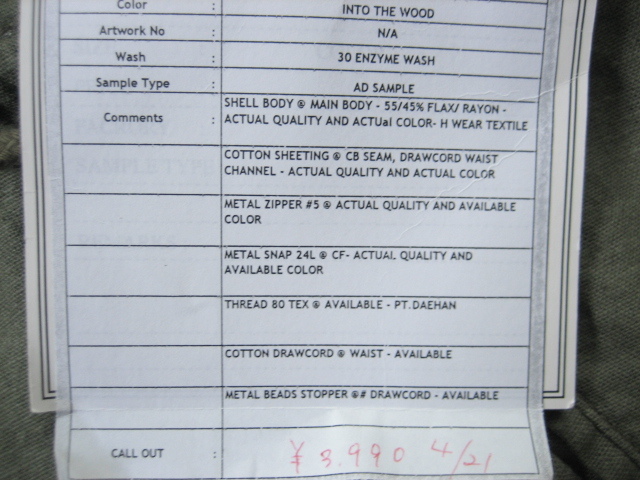 Color : INTO THE WOOD
Artwork No : N/A
Wash : 30 ENZYME WASH
Sample Type : AD SAMPLE
Comments : SHELL BODY @ MAIN BODY - 55/45% FLAX/ RAYON -
ACTUAL QUALITY AND ACTUal COLOR- H WEAR TEXTILE
COTTON SHEETING @ CB SEAM, DRAWCORD WAIST
CHANNEL - ACTUAL QUALITY AND ACTUAL COLOR
METAL ZIPPER #5 @ ACTUAL QUALITY AND AVAILABLE
COLOR
METAL SNAP 24L @ CF- ACTUAL QUALITY AND
AVAILABLE COLOR
THREAD 80 TEX @ AVAILABLE - PT.DAEHAN
COTTON DRAWCORD @ WAIST - AVAILABLE
METAL BEADS STOPPER @# DRAWCORD - AVAILABLE
CALL OUT : ¥3.990 4/21